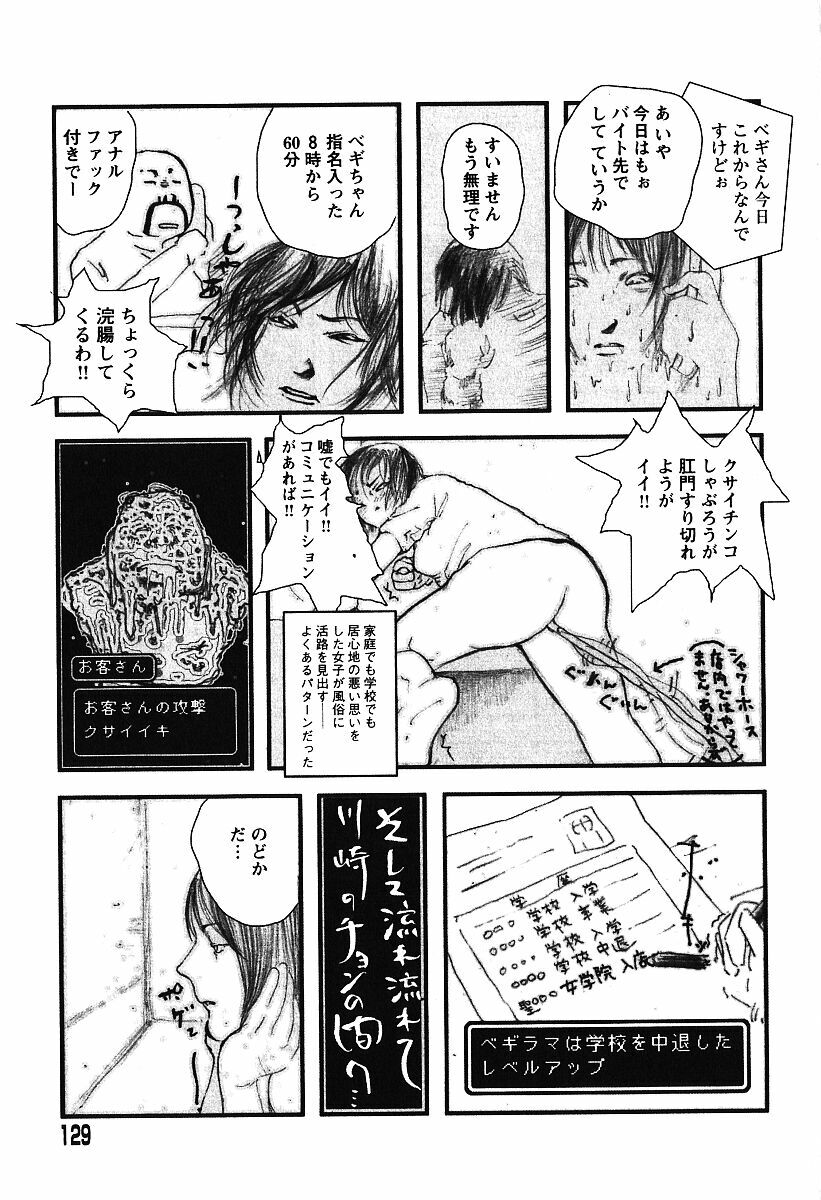 ベギさん今日
これからなんで
すけどぉ
あいや
今日はもぉ
バイト先で
してていうか
すいません
もう無理です
ベギちゃん
指名入った
8時から
60分
アナル
ファック
付きでー
ちょっくら
浣腸して
くるわ!!
クサイチンコ
しゃぶろうが
肛門すり切れ
ようが
イイ!!
嘘でもイイ!!
コミュニケーション
があれば!!
シャワーホース
ぐいん
家庭でも学校でも
居心地の悪い思いを
した女子が風俗に
活路を見出す――
よくあるパターンだった
お客さん
お客さんの攻撃
クサイイキ
学歴
○○○学校 入学
学校 入学
○○○○学校 中退
聖○○○女学院 入店
ベギラマは学校を中退した
レベルアップ
そして流れ流れて
川崎のチョンの間へ…
のどか
だ…
129